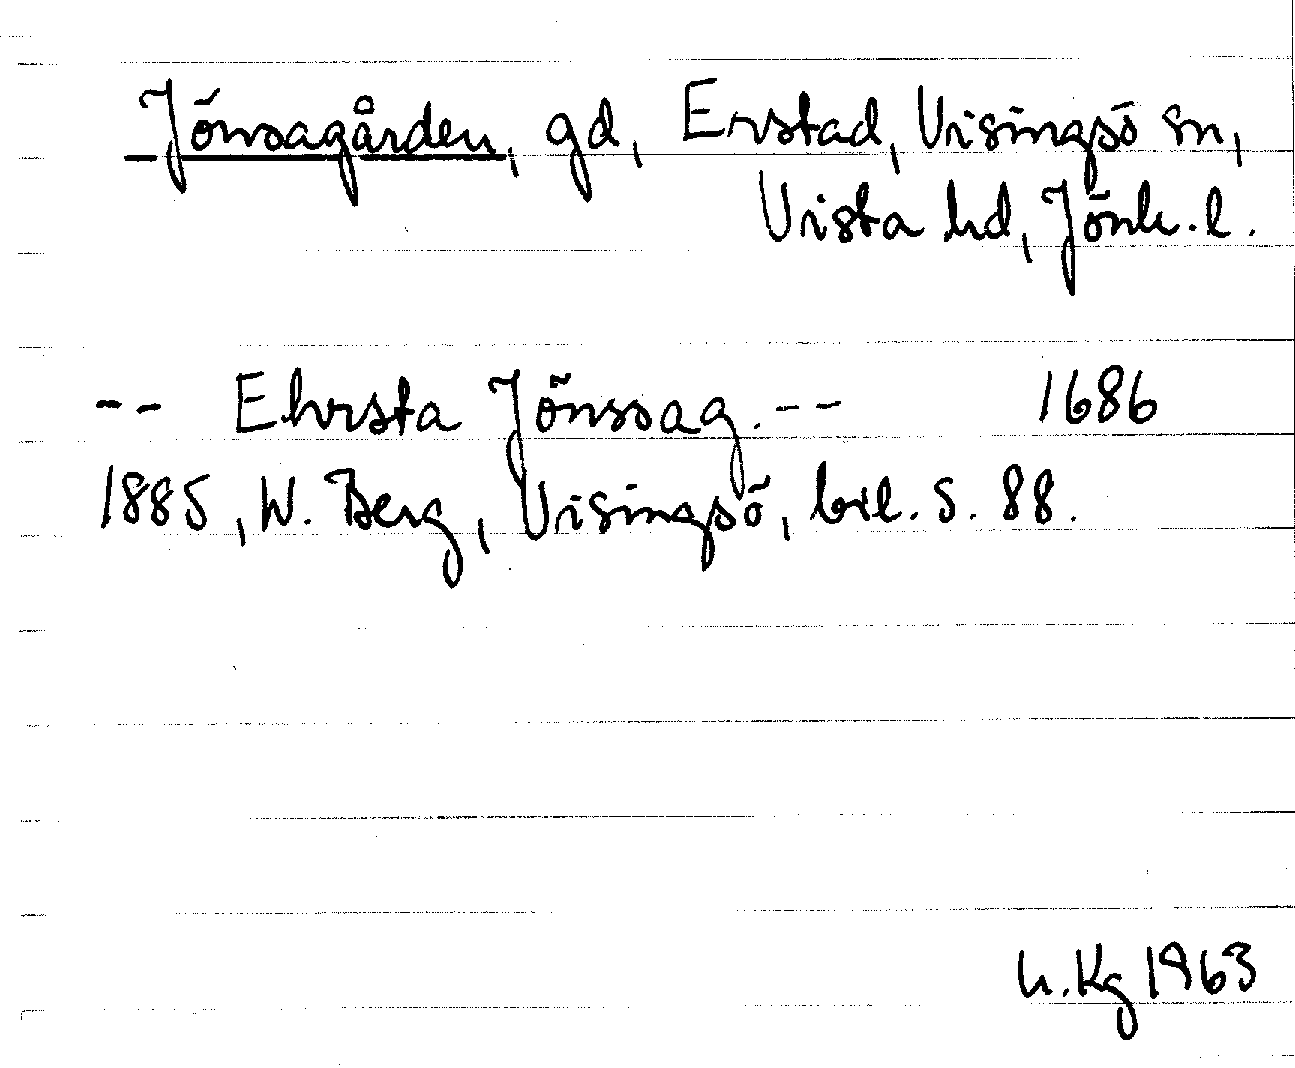 Jönsagården, gd, Erstad, Visingsö sn,
Vista hd, Jönk. l.
-- Ehrsta Jönssag. -- 1686
1885, W. Berg, Visingsö, bil. S. 88.
h. Kg 1963